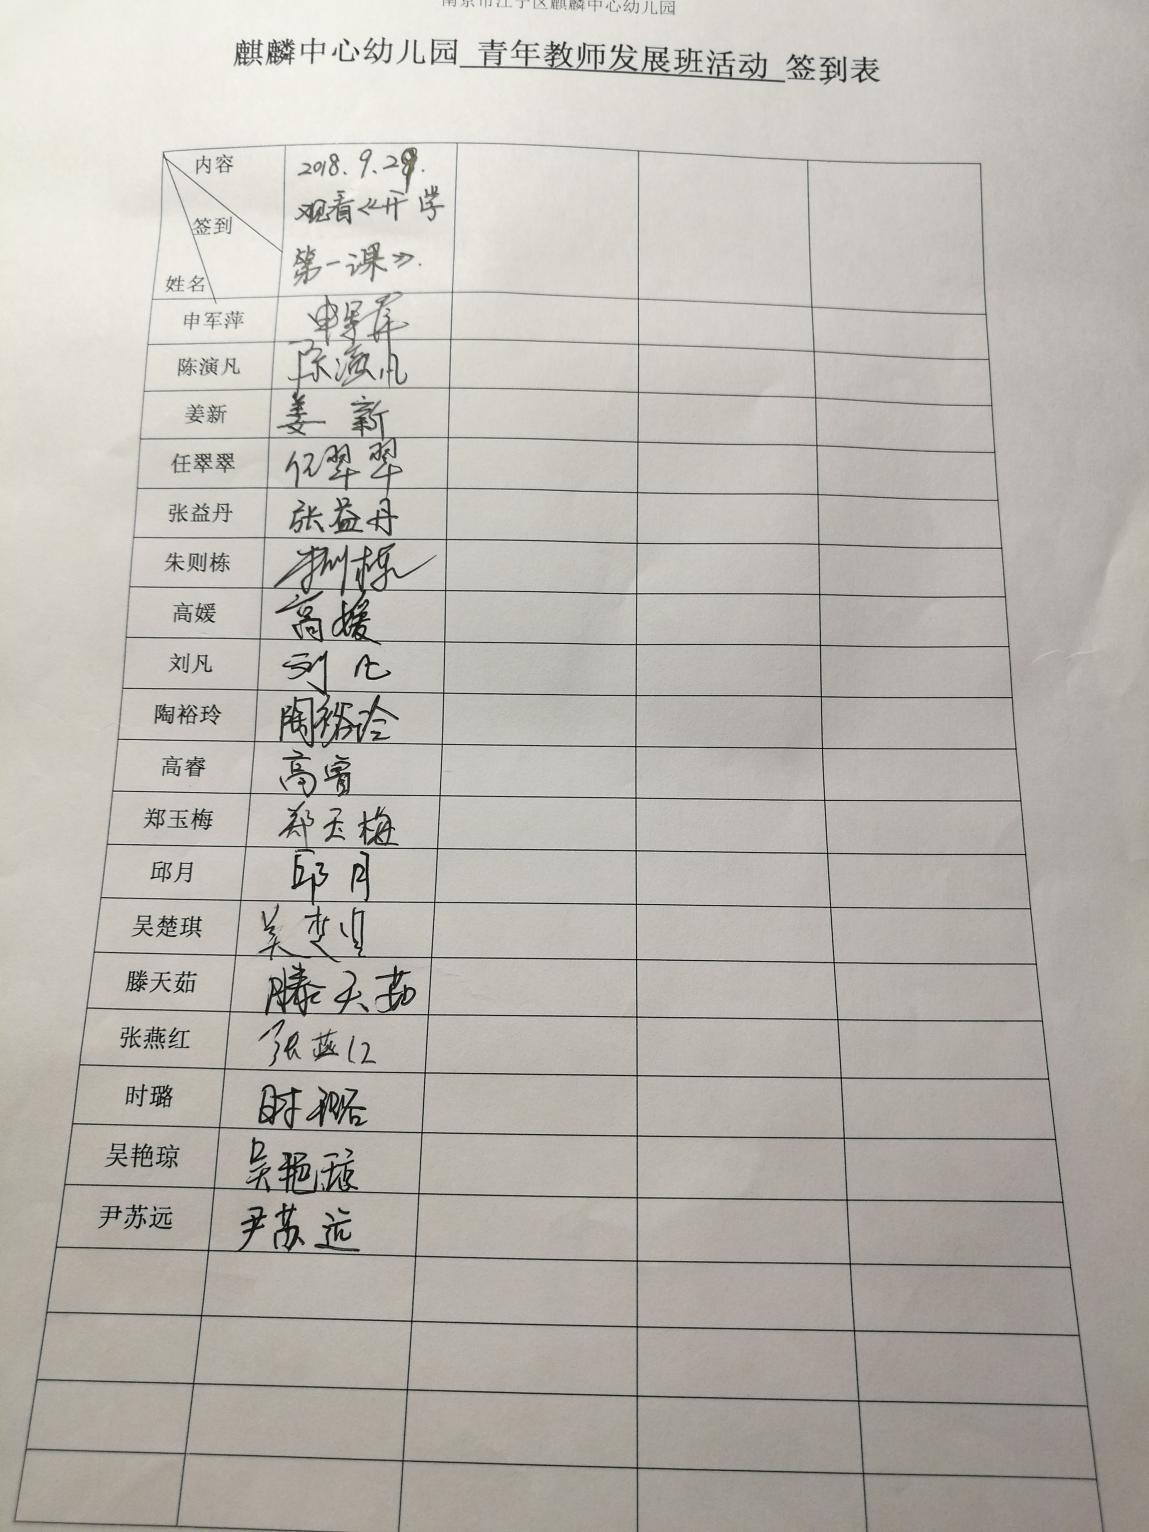 南京市江宁区麒麟中心幼儿园
麒麟中心幼儿园 青年教师发展班活动 签到表
内容
签到
姓名
2018.9.29.
观看《开学
第一课》.
申军萍 申军萍
陈演凡 陈演凡
姜新 姜新
任翠翠 任翠翠
张益丹 张益丹
朱则栋 朱则栋
高媛 高媛
刘凡 刘凡
陶裕玲 陶裕玲
高睿 高睿
郑玉梅 郑玉梅
邱月 邱月
吴楚琪 吴楚琪
滕天茹 滕天茹
张燕红 张燕红
时璐 时璐
吴艳琼 吴艳琼
尹苏远 尹苏远